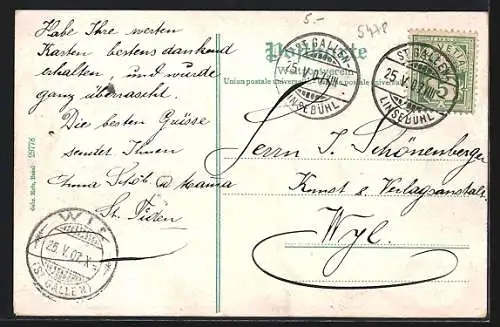 Habe Ihre werten
Karten bestens dankend
erhalten, und wurde
ganz überrascht.
Die besten Grüsse
sendet Ihnen
Anna Schöb @ Mama
St. Fiden
5.-
547P
Postkarte
Weltpostverein
Union postale universelle
ST. GALLEN
25.V.07.VIII
LINSEBÜHL
ST. GALLEN
25.V.07.VIII
LINSEBÜHL
5
Herrn J. Schönenberger
Kunst & Verlagsanstalt
Wyl.
WIL
25.V.07.X
(ST. GALLEN)
Gebr. Metz, Basel 29778